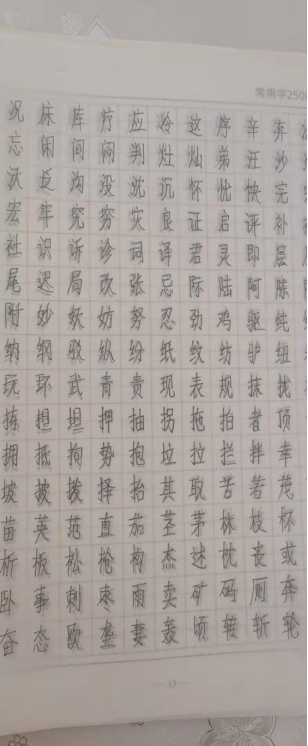 常用字250
况 床 库 疗 应 冷 这 序 辛 弃
忘 闲 间 闷 判 灶 灿 弟 汪 沙
沃 泛 沟 没 沈 沉 怀 忧 快 完
宏 牢 究 穷 灾 良 证 启 评 补
社 识 诉 诊 词 译 君 灵 即 层
尾 迟 局 改 张 忌 际 陆 阿 陈
附 妙 妖 妨 努 忍 劲 鸡 驱 纯
纳 纲 驳 纵 纷 纸 纹 纺 驴 纽
玩 环 武 青 责 现 表 规 抹 拢
拣 担 坦 押 抽 拐 拖 拍 者 顶
拥 抵 拘 势 抱 垃 拉 拦 拌 幸
坡 披 拨 择 抬 其 取 苦 若 茂
苗 英 范 直 茄 茎 茅 林 枝 杯
析 板 松 枪 构 杰 述 枕 丧 或
卧 事 刺 枣 雨 卖 矿 码 厕 奔
奋 态 欧 垄 妻 轰 顷 转 斩 轮
13